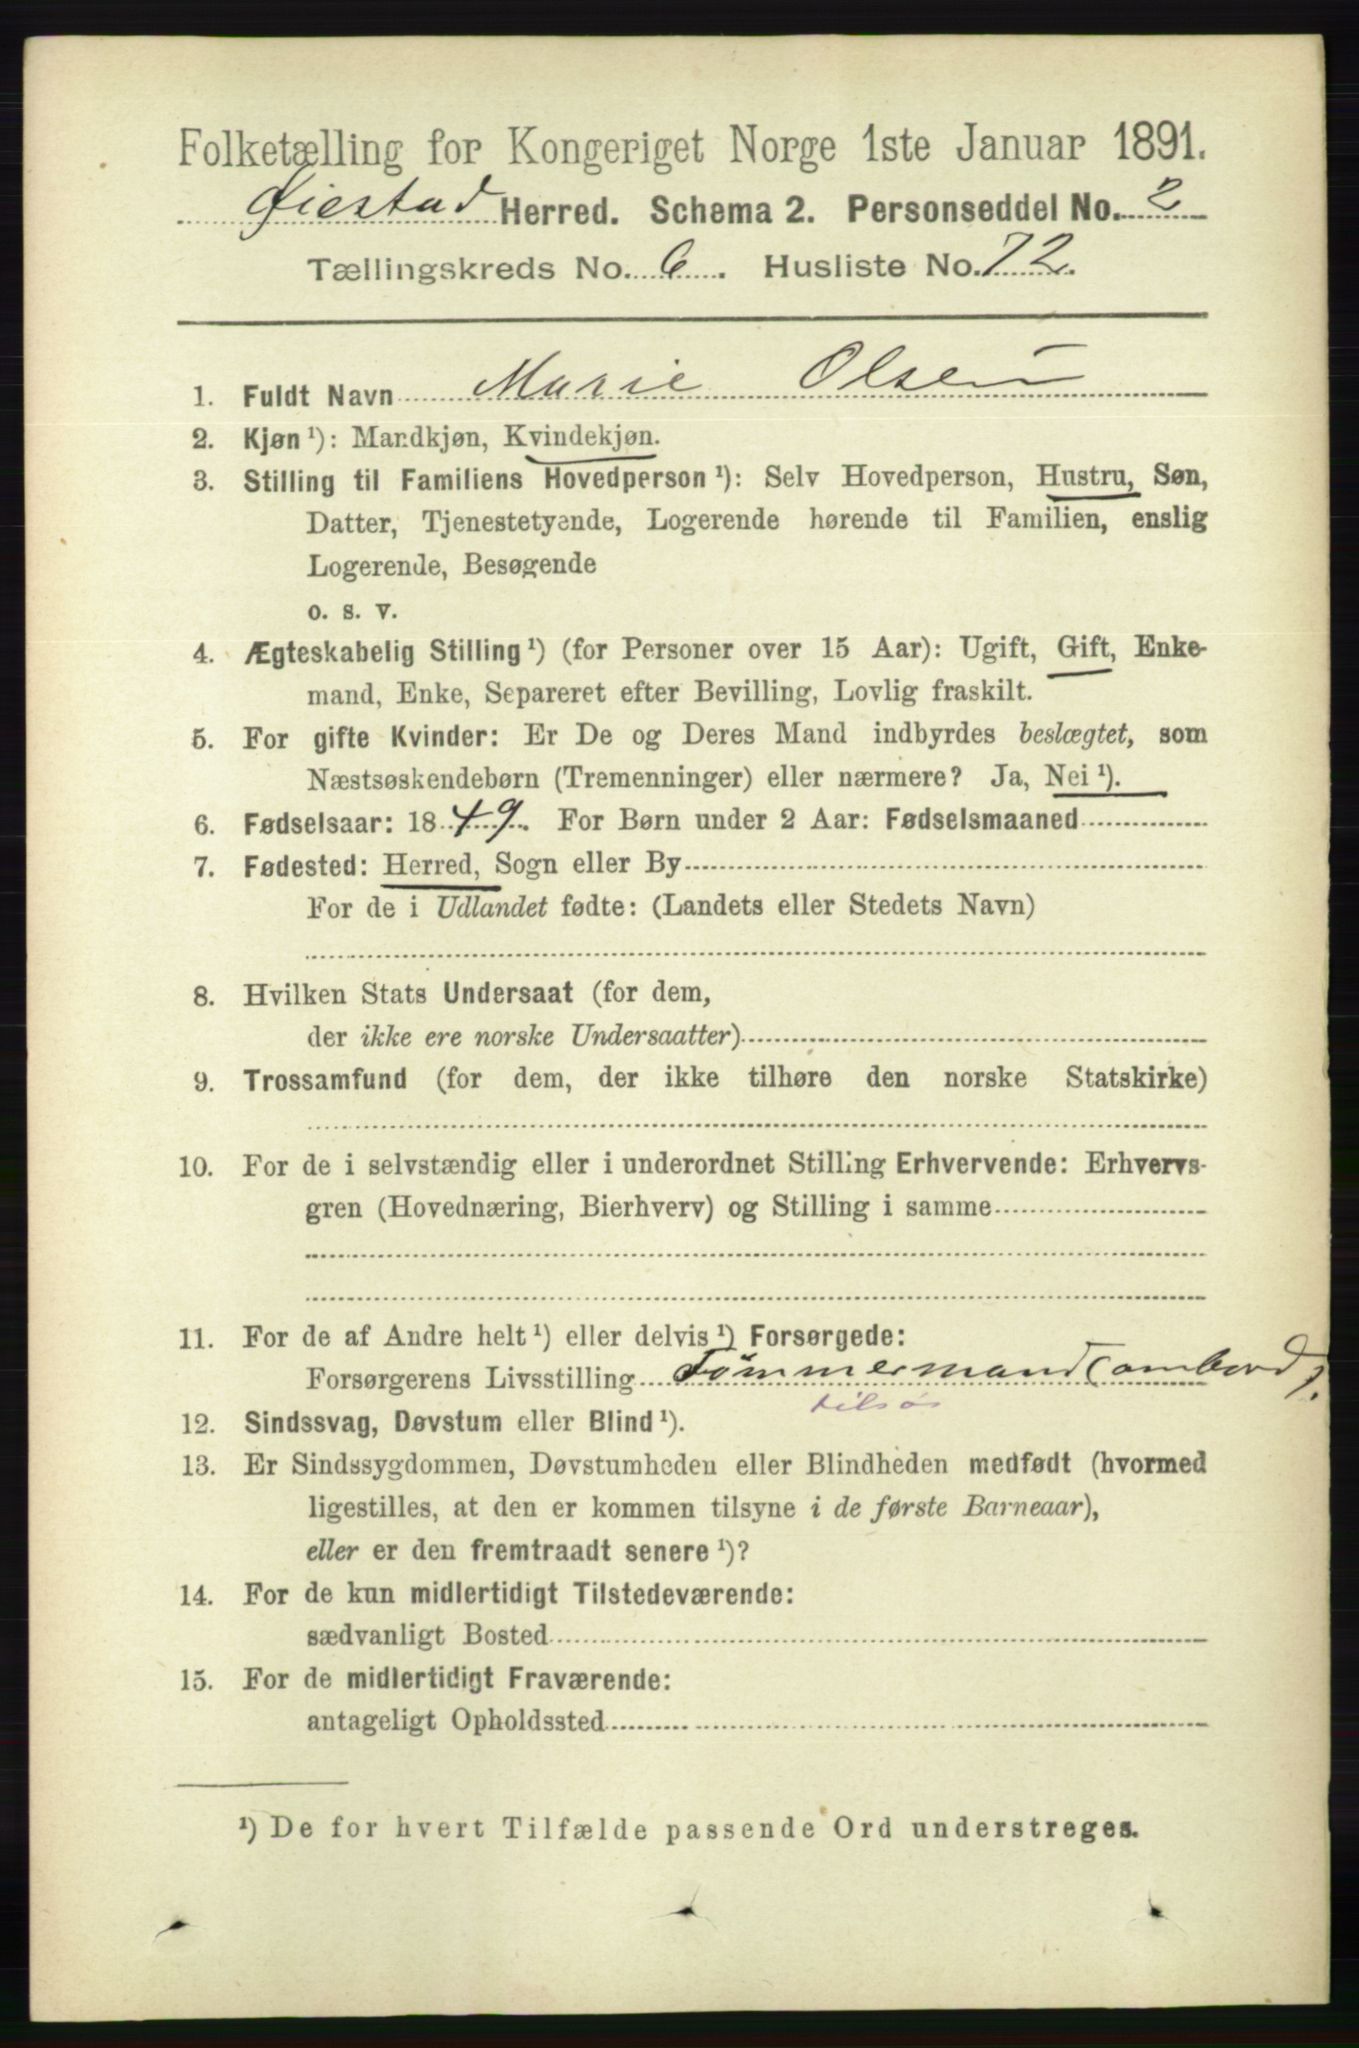 Folketælling for Kongeriget Norge 1ste Januar 1891.
Øiestad Herred. Schema 2. Personseddel No. 2
Tællingskreds No. 6. Husliste No. 72.
1. Fuldt Navn Marie Olsen
2. Kjøn ¹): Mandkjøn, Kvindekjøn.
3. Stilling til Familiens Hovedperson ¹): Selv Hovedperson, Hustru, Søn,
Datter, Tjenestetyende, Logerende hørende til Familien, enslig
Logerende, Besøgende
o. s. v.
4. Ægteskabelig Stilling ¹) (for Personer over 15 Aar): Ugift, Gift, Enke-
mand, Enke, Separeret efter Bevilling, Lovlig fraskilt.
5. For gifte Kvinder: Er De og Deres Mand indbyrdes beslægtet, som
Næstsøskendebørn (Tremenninger) eller nærmere? Ja, Nei ¹).
6. Fødselsaar: 1849. For Børn under 2 Aar: Fødselsmaaned
7. Fødested: Herred, Sogn eller By
For de i Udlandet fødte: (Landets eller Stedets Navn)
8. Hvilken Stats Undersaat (for dem,
der ikke ere norske Undersaatter)
9. Trossamfund (for dem, der ikke tilhøre den norske Statskirke)
10. For de i selvstændig eller i underordnet Stilling Erhvervende: Erhvervs-
gren (Hovednæring, Bierhverv) og Stilling i samme
11. For de af Andre helt ¹) eller delvis ¹) Forsørgede:
Forsørgerens Livsstilling Tømmermand (ombord).
tilsøs
12. Sindssvag, Døvstum eller Blind ¹).
13. Er Sindssygdommen, Døvstumheden eller Blindheden medfødt (hvormed
ligestilles, at den er kommen tilsyne i de første Barneaar),
eller er den fremtraadt senere ¹)?
14. For de kun midlertidigt Tilstedeværende:
sædvanligt Bosted
15. For de midlertidigt Fraværende:
antageligt Opholdssted
¹) De for hvert Tilfælde passende Ord understreges.